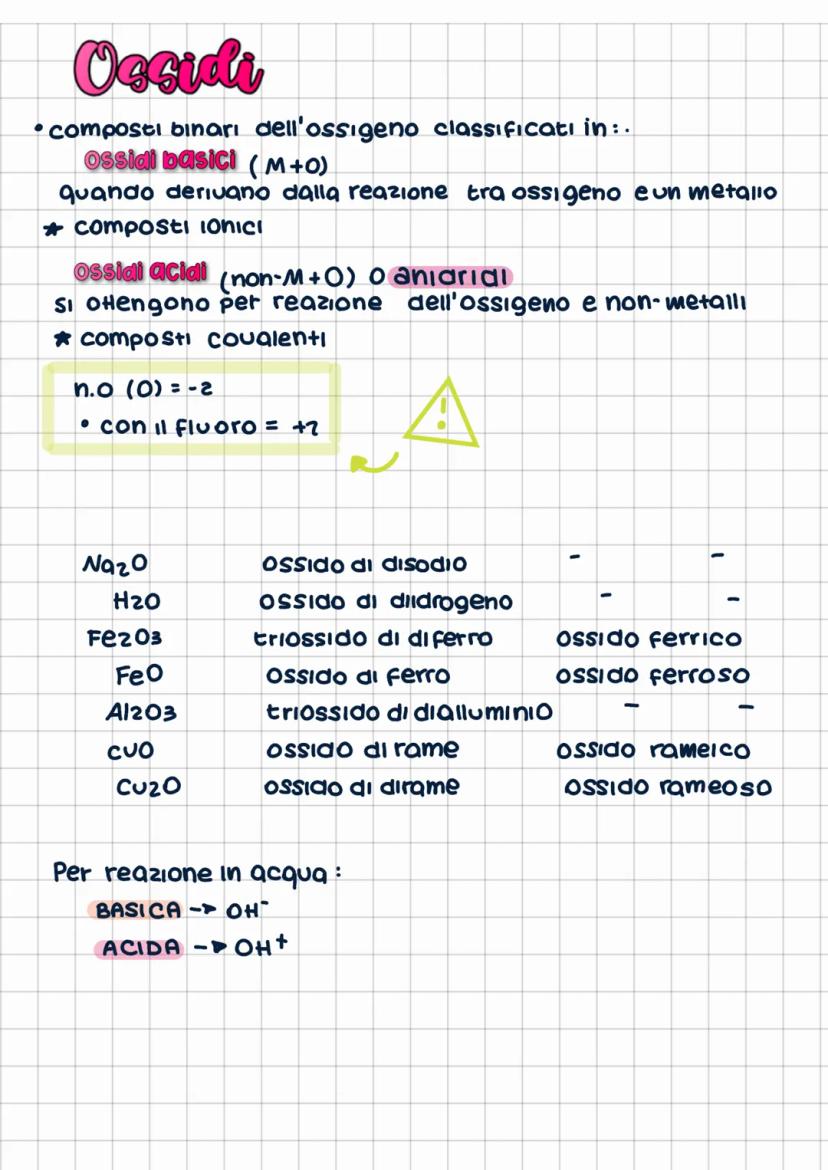 Ossidi
• composti binari dell'ossigeno classificati in:.
ossidi basici (M+O)
quando derivano dalla reazione tra ossigeno e un metallo
★ composti ionici
ossidi acidi (non-M+O) o anidridi
si ottengono per reazione dell'ossigeno e non-metalli
★ composti covalenti
n.o (O) = -2
• con il fluoro = +2
!
Na2O ossido di disodio - -
H2O ossido di diidrogeno - -
Fe2O3 triossido di diferro ossido ferrico
FeO ossido di ferro ossido ferroso
Al2O3 triossido di dialluminio - -
CuO ossido di rame ossido rameico
Cu2O ossido di dirame ossido rameoso
Per reazione in acqua:
BASICA -> OH-
ACIDA -> OH+